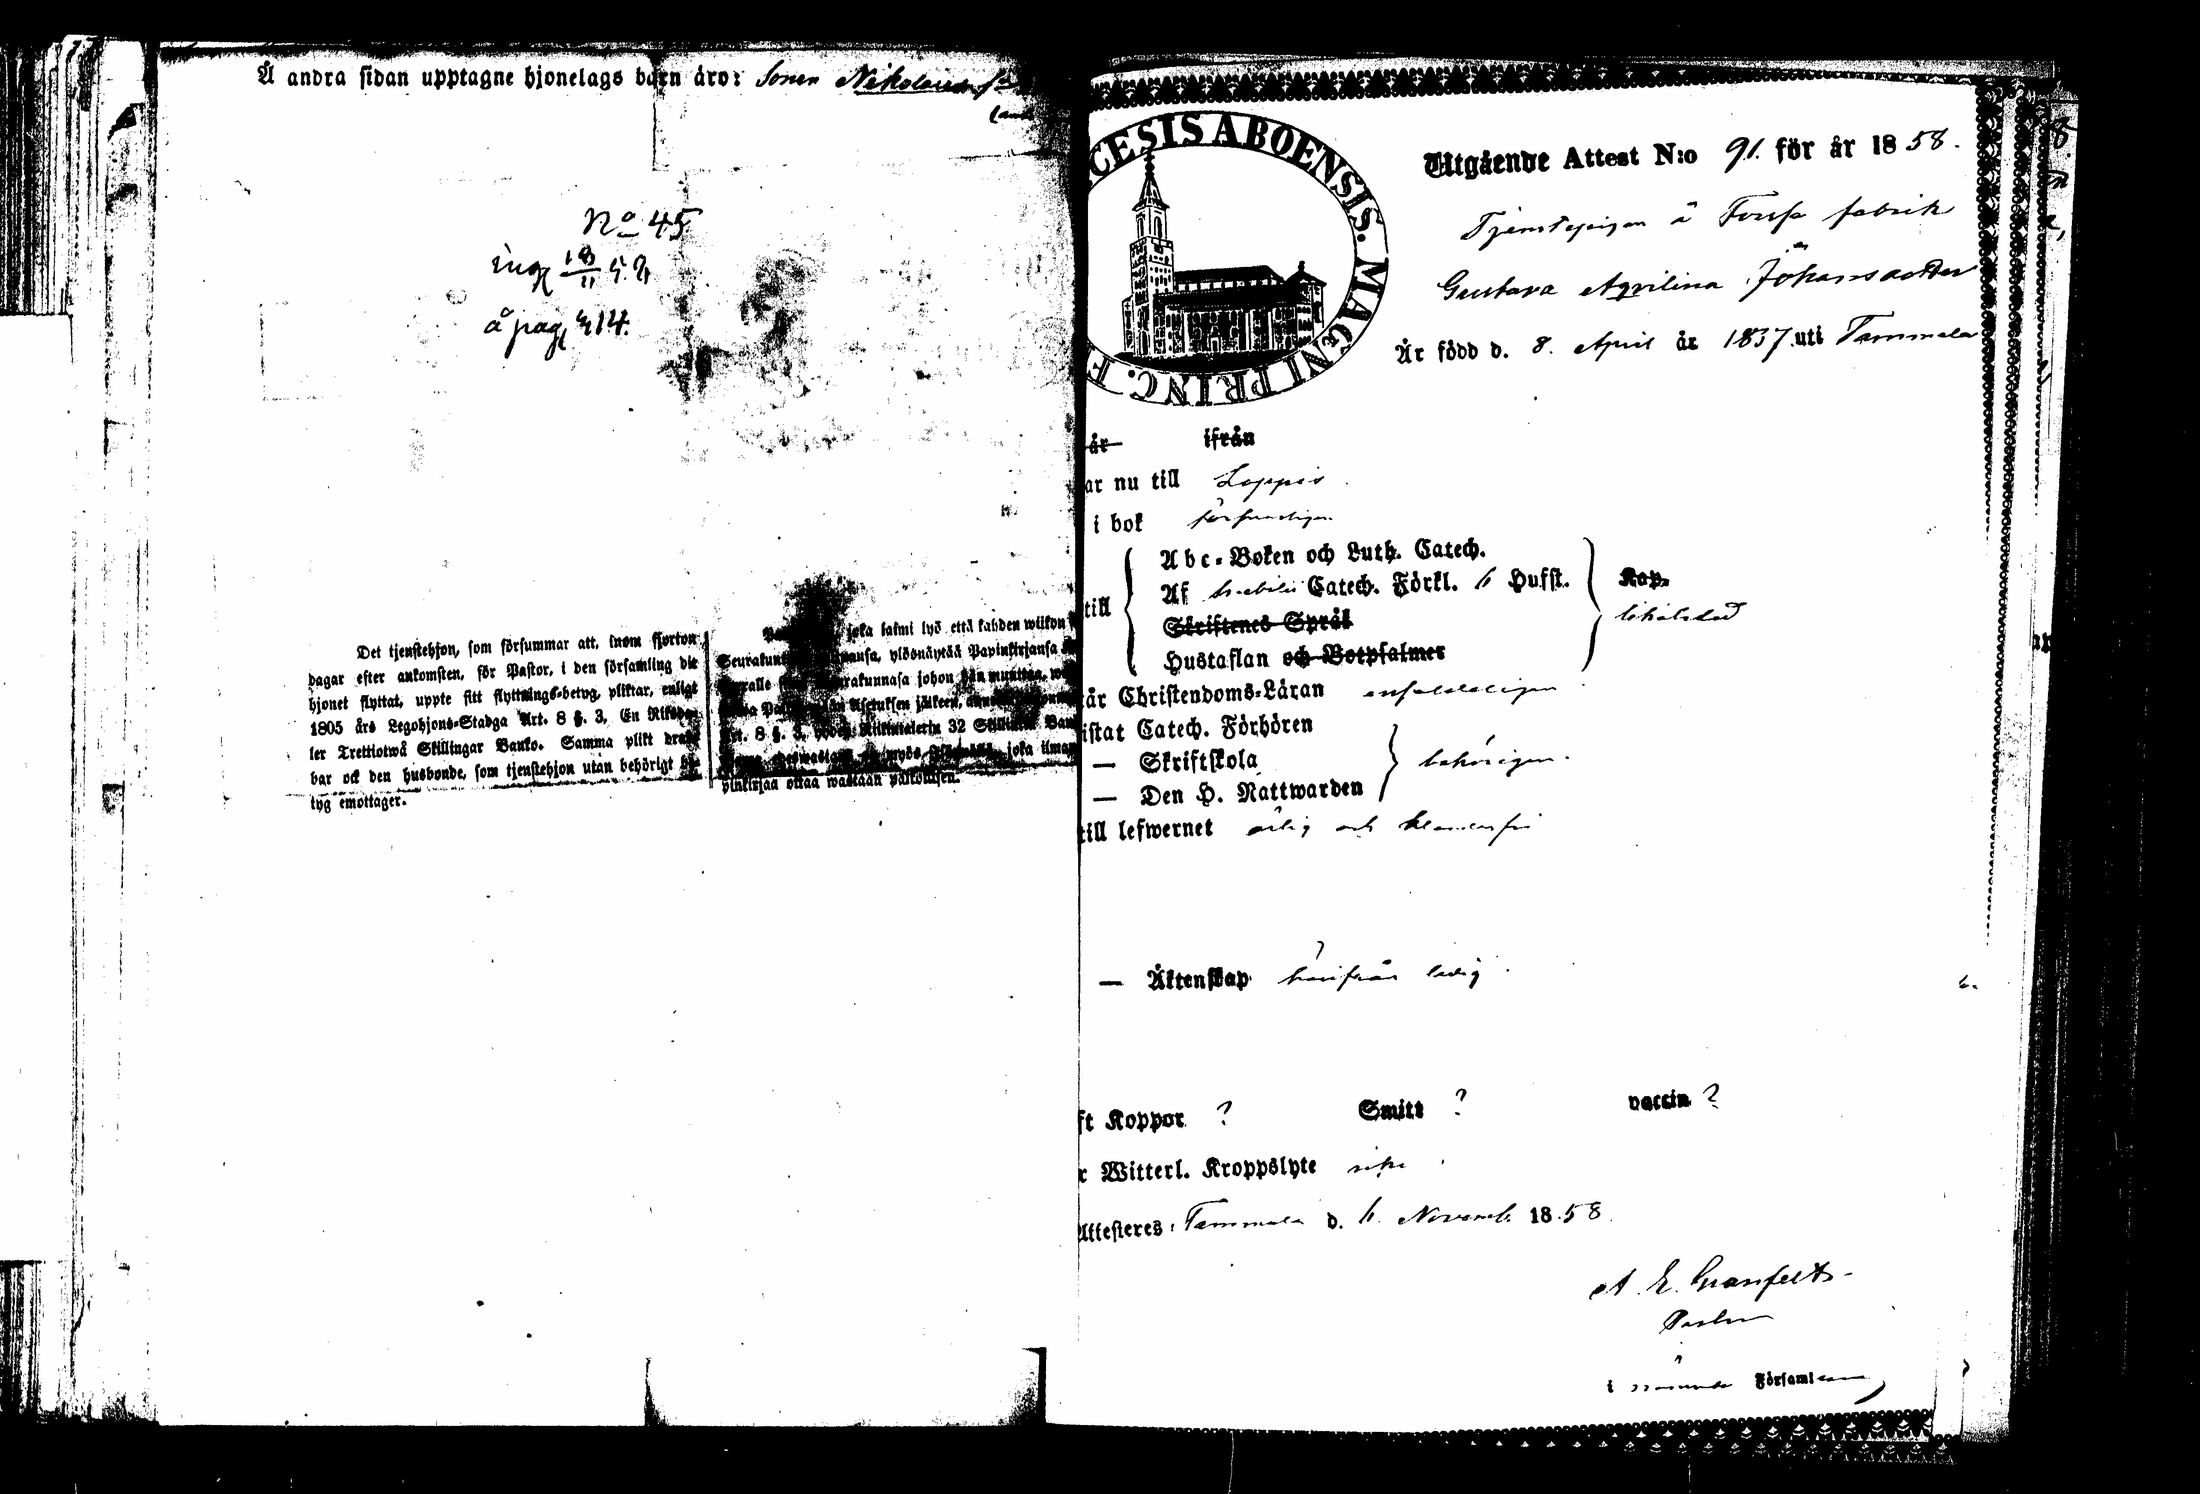 Å andra sidan upptagne hjonelags barn äro: Sonen Nikolaus
No 45
ing 13/11 58
å pag 414.
Det tjenstehjon, som försummar att, inom fjorton
dagar efter ankomsten, för Pastor, i den församling dit
hjonet flyttat, uppte sitt flyttnings-betyg, pliktar, enligt
1805 års Legohjons-Stadga Art. 8 §. 3, En Riksda-
ler Trettiotwå Skillingar Banko. Samma plikt drab-
bar ock den husbonde, som tjenstehjon utan behörigt be-
tyg emottager.
joka laimi lyö että kahden wiikon
ylösnäytää Papinkirjansa
johon hän muuttaa,
Asetuksen jälkeen,
Art. 8 §. 3, Riikintalerin 32 Skillinkiä
myös joka ilman
pinkirjaa ottaa wastaan palkollisen.
CESIS ABOENSIS. MAGNI PRINC. F
Utgående Attest N:o 91. för år 1858.
Tjenstepigan å Forssa fabrik
Gustava Aqvilina Johansdotter
Är född d. 8. April år 1837. uti Tammela
år ifrån
ar nu till Loppis
i bok försvarligen
till
Abc-Boken och Luth. Catech.
Af Catech. Förkl. Hufst.
Skriftenes Språk
Hustaflan och Botpsalmer
Kap.
år Christendoms-Läran enfaldeligen
istat Catech. Förhören
— Skriftskola
— Den H. Nattwarden
behörigen.
till lefwernet ärlig och klanderfri
— Äktenskap härifrån ledig.
ft Koppor ? Smitt ? vaccin ?
r Witterl. Kroppslyte icke
Attesteres: Tammela d. 6. Novemb. 1858.
A. E. Granfelt
Pastor
i nämnde Församl